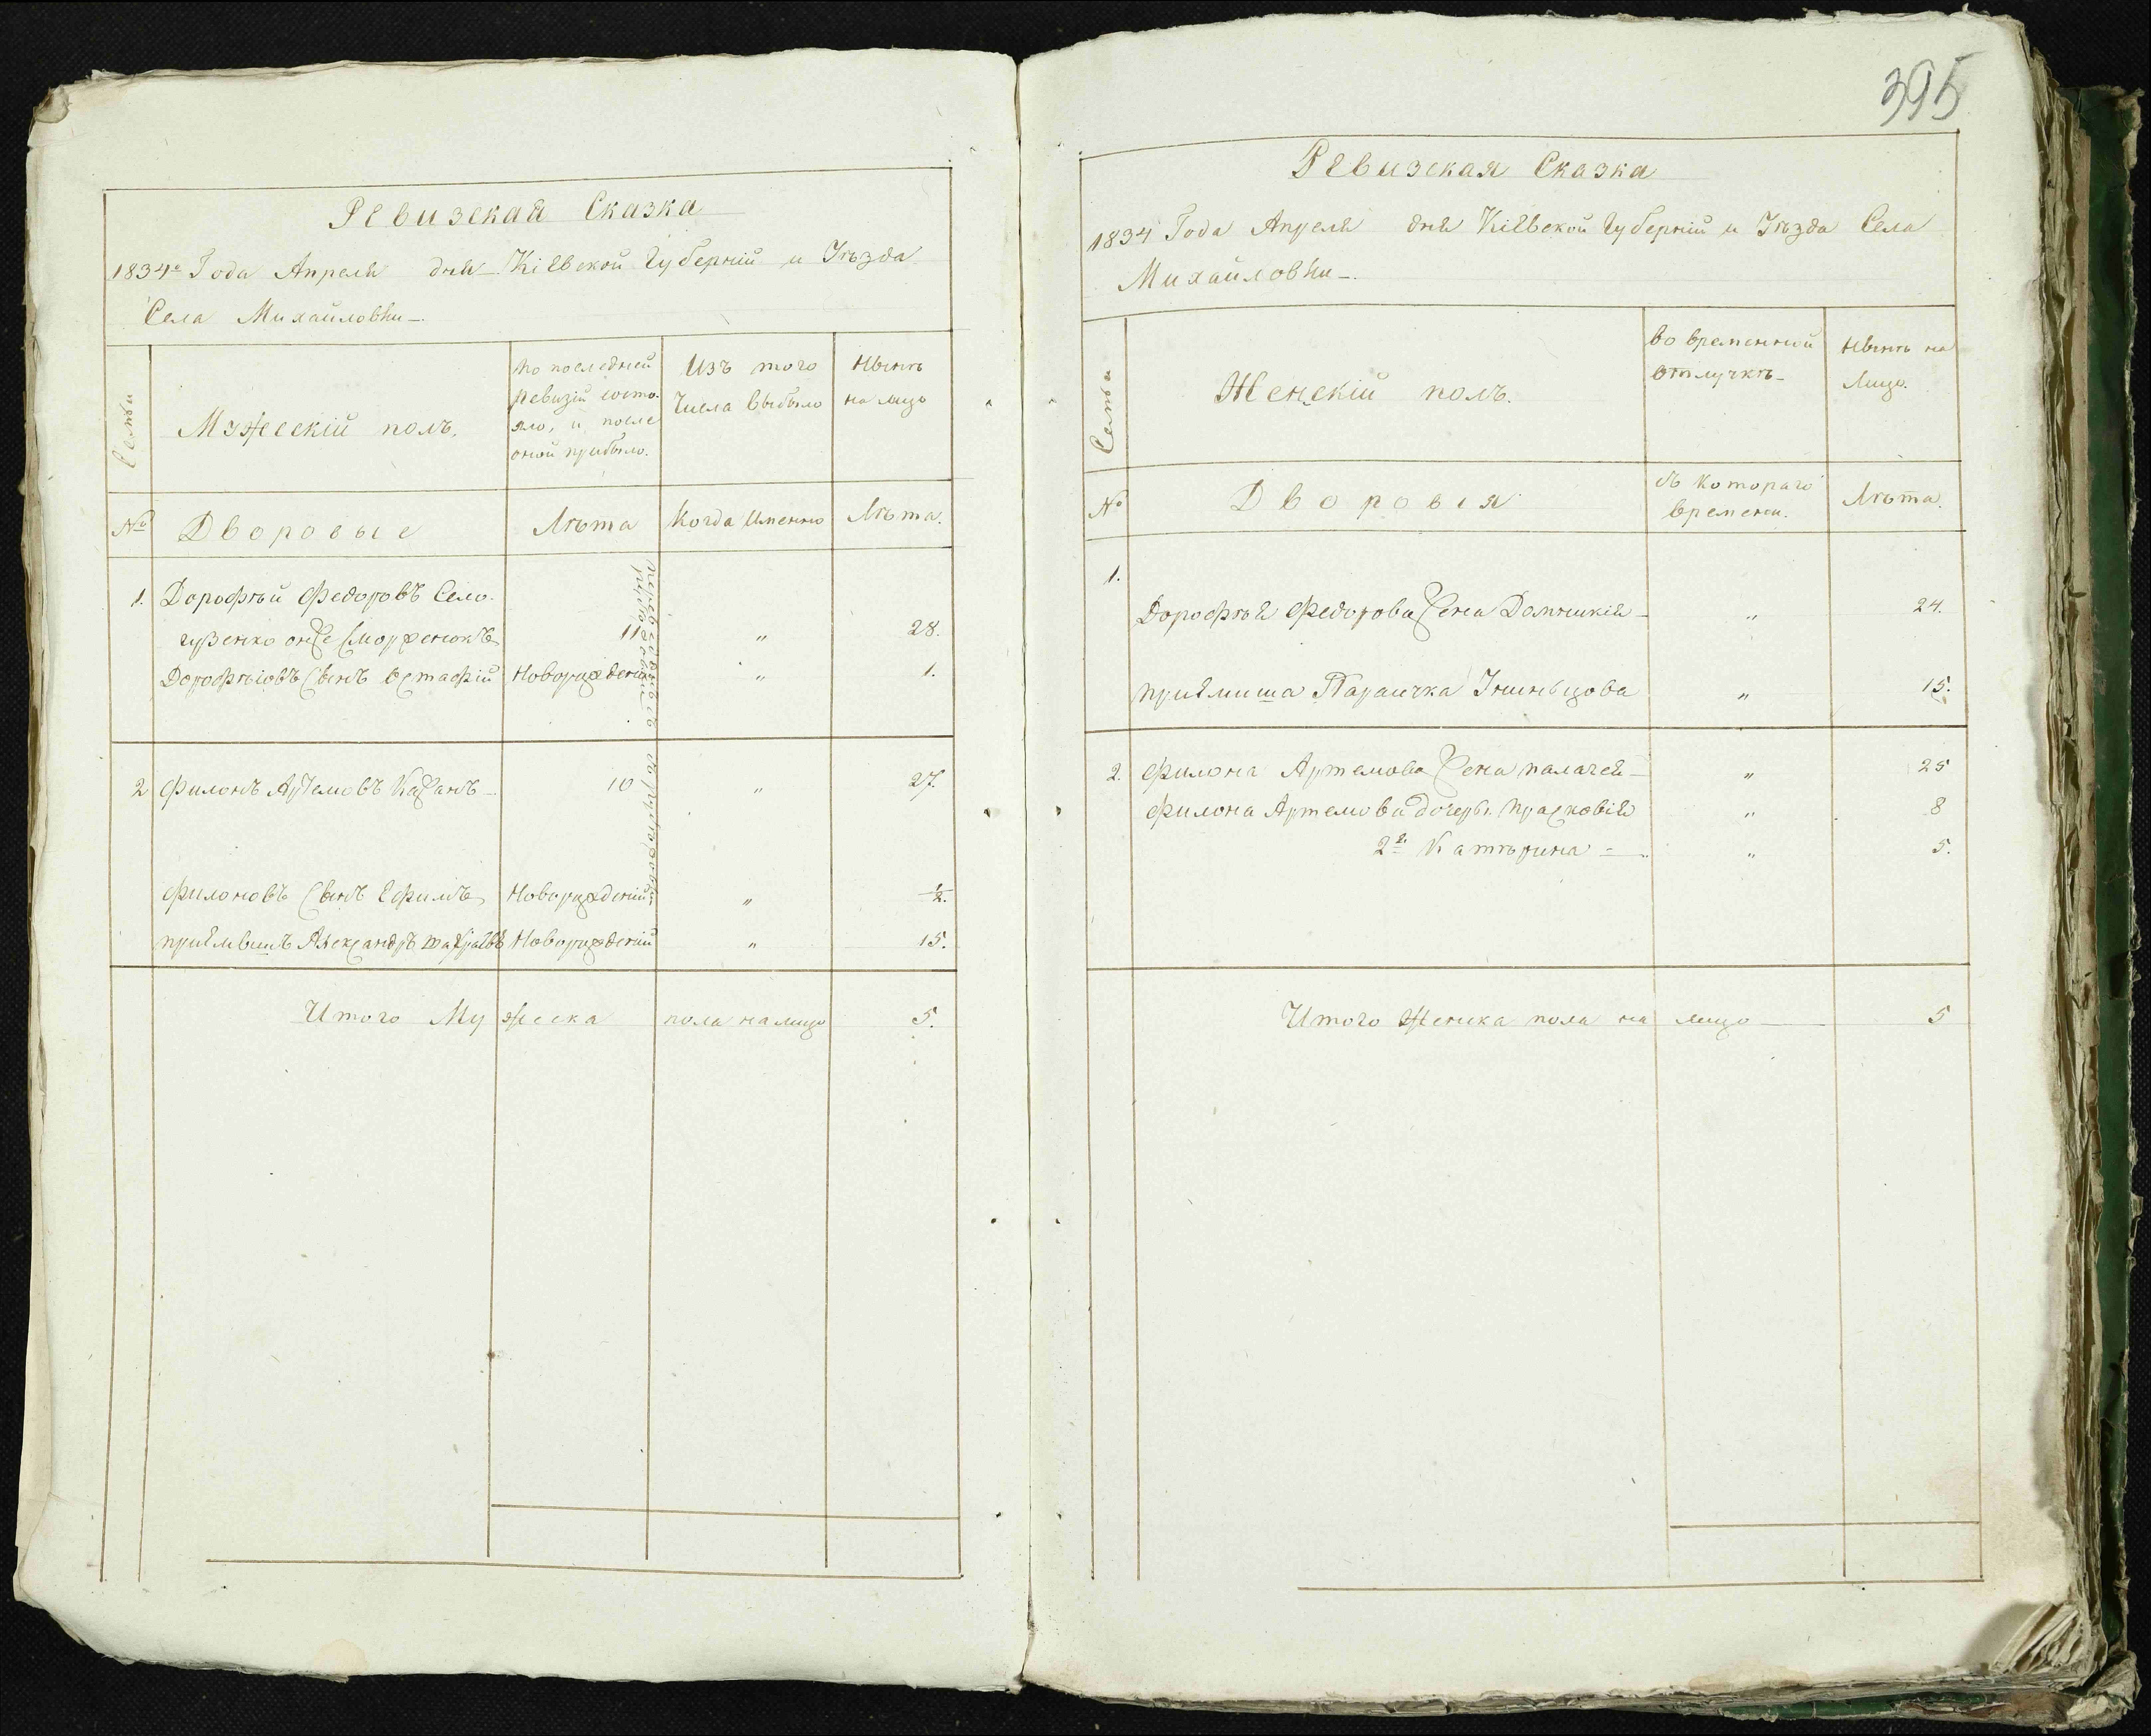 Ревизская Сказка
1834го Года Апреля дня Кіевской Губерніи и Уѣзда
Села Михайловки
Семьи
Мужескій полъ.
По последней
ревизіи состо-
яло, и после
оной прибыло.
Изъ того
Числа выбыло
Нынѣ
на лицо
№
Дворовые
Лѣта
Когда Именно
Лѣта.
1. Дорофѣй Федоровъ Село-
11 " 28.
Дорофѣіовъ Сынъ Остафій Новорожденій " 1.
2 Филонъ Артемовъ Кажанъ 10 " 27.
Филоновъ Сынъ Ефимъ Новорожденій " 1/2.
пріемышъ Александръ Новорожденій " 15.
Итого Мужеска пола на лицо 5.
395
Ревизская Сказка
1834 Года Апреля дня Кіевской Губерніи и Уѣзда Села
Михайловки
Семьи
Женскій полъ.
Во временной
отлучкѣ
Нынѣ на
Лицо.
№
Дворовыя
Съ Котораго
времени.
Лѣта.
1.
Дорофѣя Федорова Жена Домникія " 24.
пріемиша Параичка " 15.
2. Филона Артемова Жена палагея " 25
Филона Артемова дочеры. Прасковія " 8
2я Катѣрина " 5.
Итого Женска пола на лицо 5